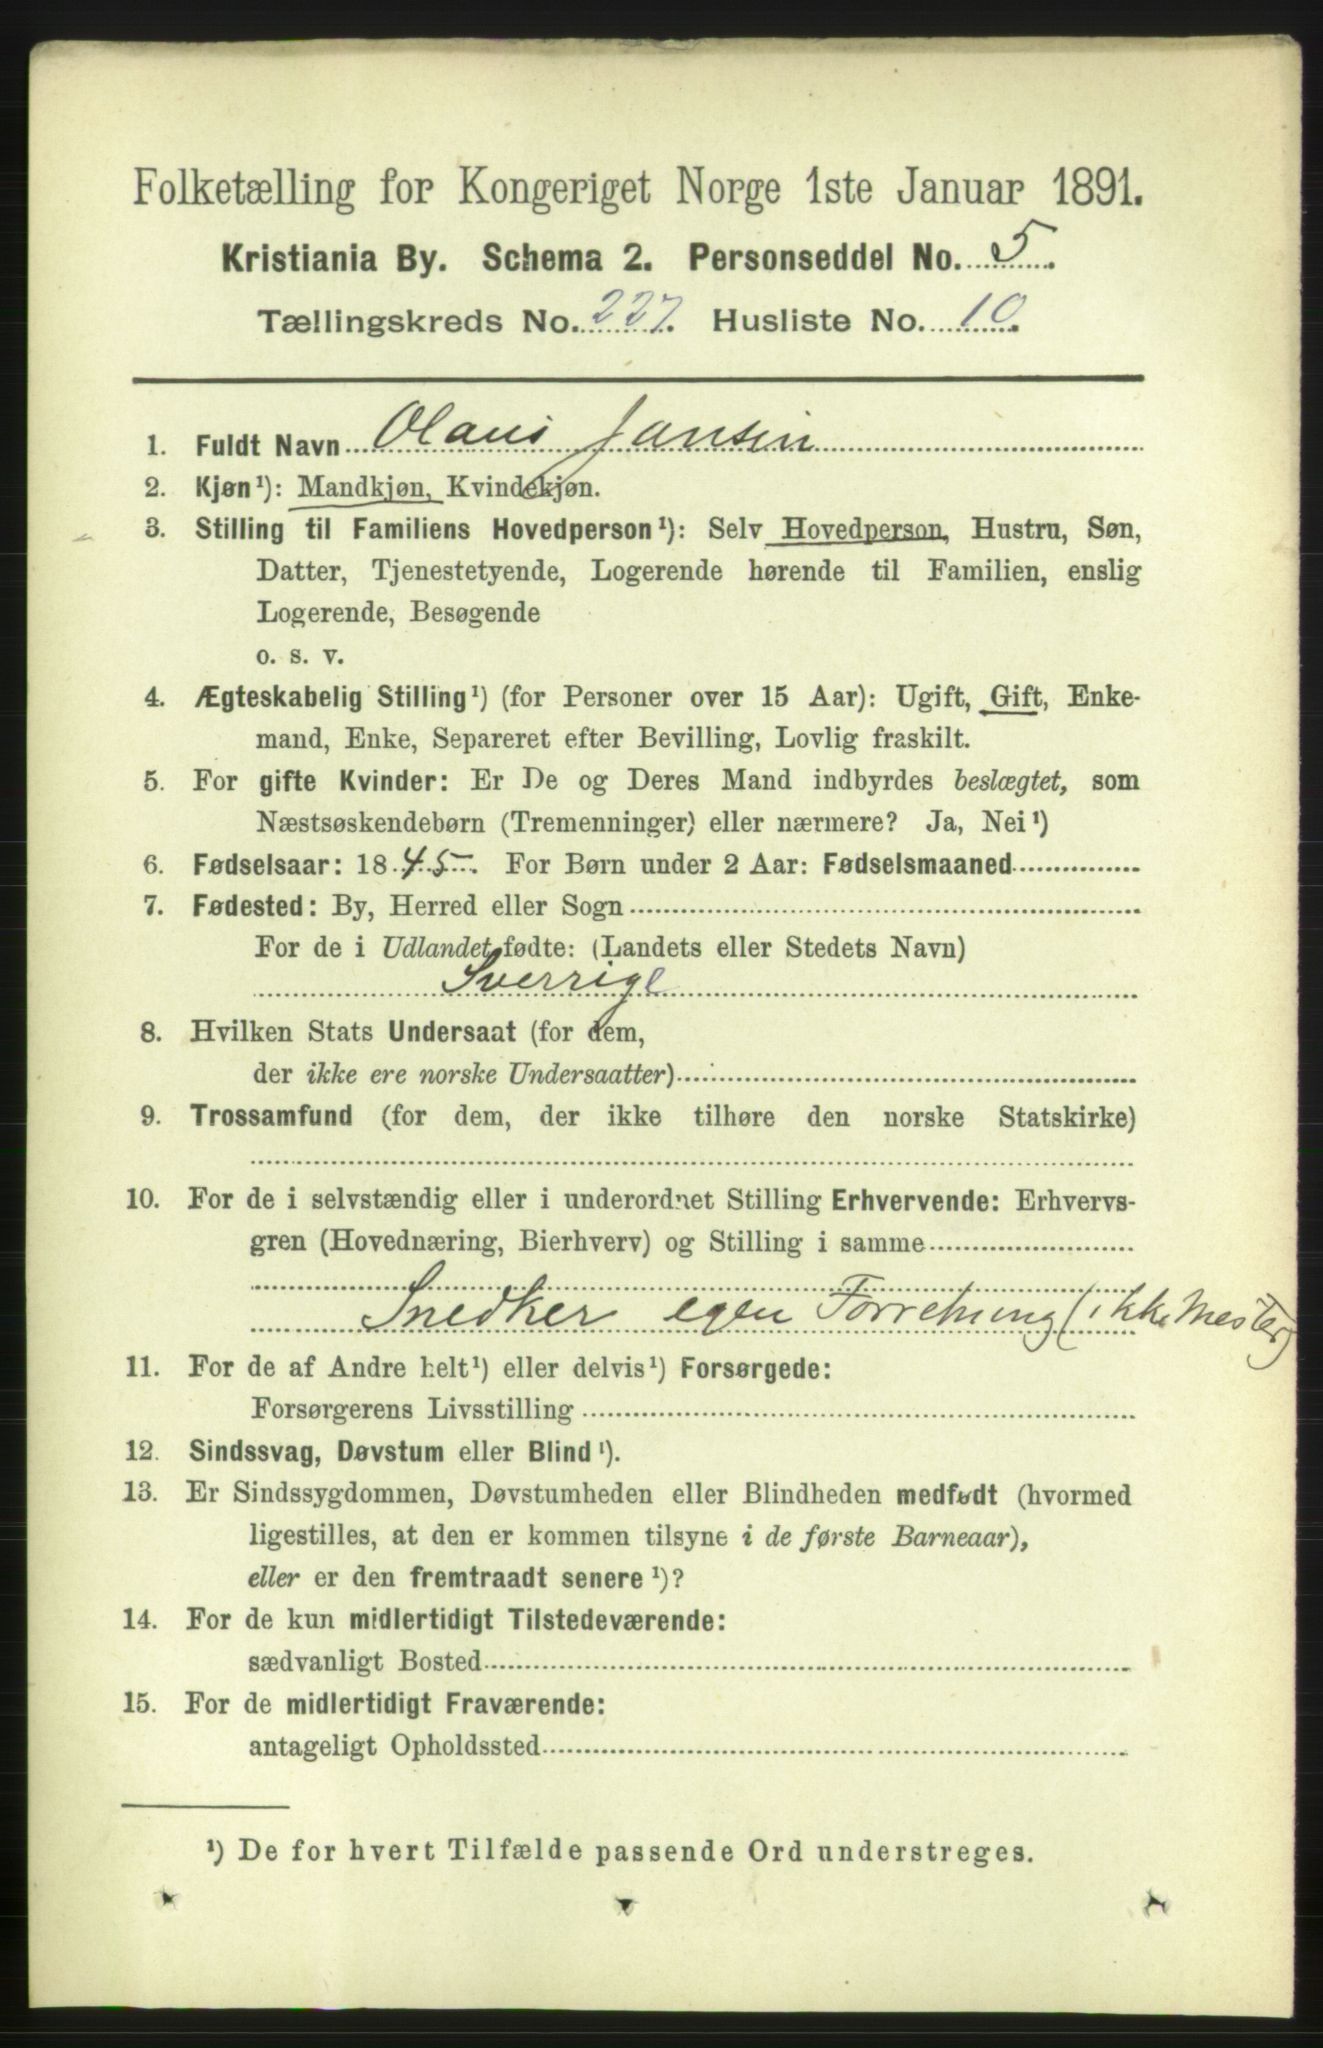 Folketælling for Kongeriget Norge 1ste Januar 1891.
Kristiania By. Schema 2. Personseddel No. 5.
Tællingskreds No. 227. Husliste No. 10.
1. Fuldt Navn Olaus Jansen
2. Kjøn¹): Mandkjøn, Kvindekjøn.
3. Stilling til Familiens Hovedperson¹): Selv Hovedperson, Hustru, Søn,
Datter, Tjenestetyende, Logerende hørende til Familien, enslig
Logerende, Besøgende
o. s. v.
4. Ægteskabelig Stilling¹) (for Personer over 15 Aar): Ugift, Gift, Enke-
mand, Enke, Separeret efter Bevilling, Lovlig fraskilt.
5. For gifte Kvinder: Er De og Deres Mand indbyrdes beslægtet, som
Næstsøskendebørn (Tremenninger) eller nærmere? Ja, Nei¹)
6. Fødselsaar: 1845. For Børn under 2 Aar: Fødselsmaaned
7. Fødested: By, Herred eller Sogn
For de i Udlandet fødte: (Landets eller Stedets Navn)
Sverrige
8. Hvilken Stats Undersaat (for dem,
der ikke ere norske Undersaatter)
9. Trossamfund (for dem, der ikke tilhøre den norske Statskirke)
10. For de i selvstændig eller i underordnet Stilling Erhvervende: Erhvervs-
gren (Hovednæring, Bierhverv) og Stilling i samme
Snedker egen Forretning (ikke Mester)
11. For de af Andre helt¹) eller delvis¹) Forsørgede:
Forsørgerens Livsstilling
12. Sindssvag, Døvstum eller Blind¹).
13. Er Sindssygdommen, Døvstumheden eller Blindheden medfødt (hvormed
ligestilles, at den er kommen tilsyne i de første Barneaar),
eller er den fremtraadt senere¹)?
14. For de kun midlertidigt Tilstedeværende:
sædvanligt Bosted
15. For de midlertidigt Fraværende:
antageligt Opholdssted
¹) De for hvert Tilfælde passende Ord understreges.